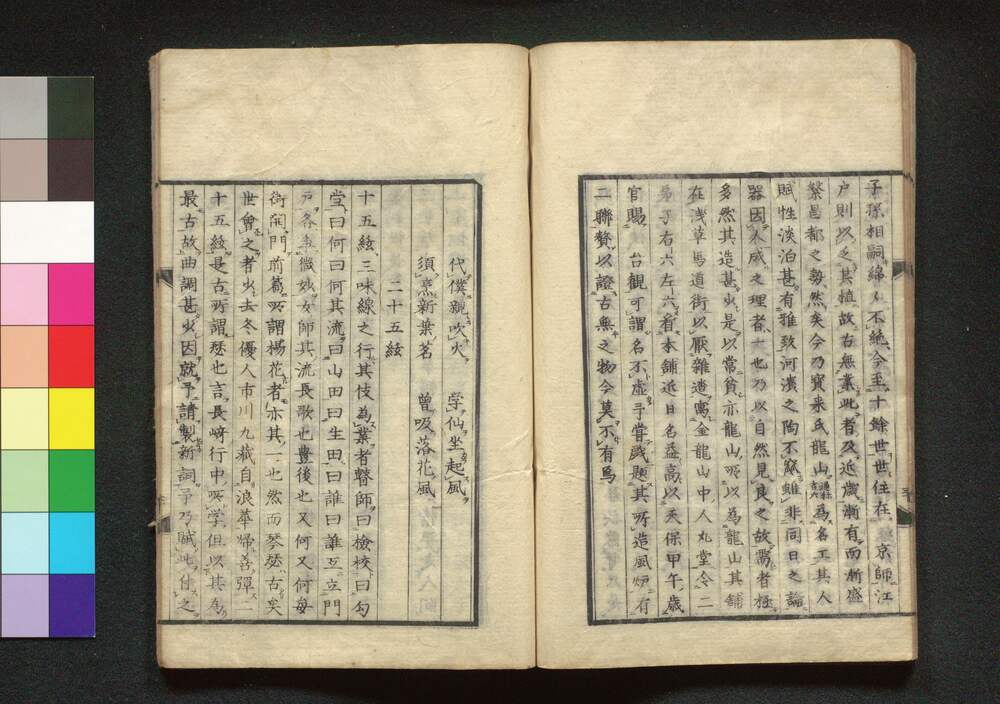 子孫相嗣綿々不絶今至十餘世世住在京師江
户則以乏其植故古無業此者及近歳漸有而漸盛
繁昌都之勢然矣今乃寶米氏龍山為名工其人
賦性淡泊甚有雅致河濱之陶不窳雖非同日之論
器因人成之理者一也乃以自然見良之故需者極
多然其造甚少是以常貧亦龍山所以為龍山其舗
在浅草馬道街以厭雜遝寓金龍山中人丸堂令二
弟子右六左六看本舗近日名益高以天保甲午歳
官賜台観可謂名不虚乎嘗戯題其所造風炉有
二聯賛以證古無之物今莫不有焉
代僕親吹火　学仙坐起風
須烹新葉茗　曾吸落花風
二十五絃
十五絃三味線之行其伎為業者瞽師曰檢校曰勾
堂曰何曰何其流曰山田曰生田曰誰曰誰互立門
戸各奏微妙女師其流長歌也豊後也又何又何毎
街開門前籍所謂楊花者亦其一也然而琴瑟古矣
世會之者少去冬優人市川九蔵自浪華帰善彈二
十五絃是古所謂瑟也言長崎行中所学但以其為
最古故曲調甚少因就予請製新詞予乃賦此付之